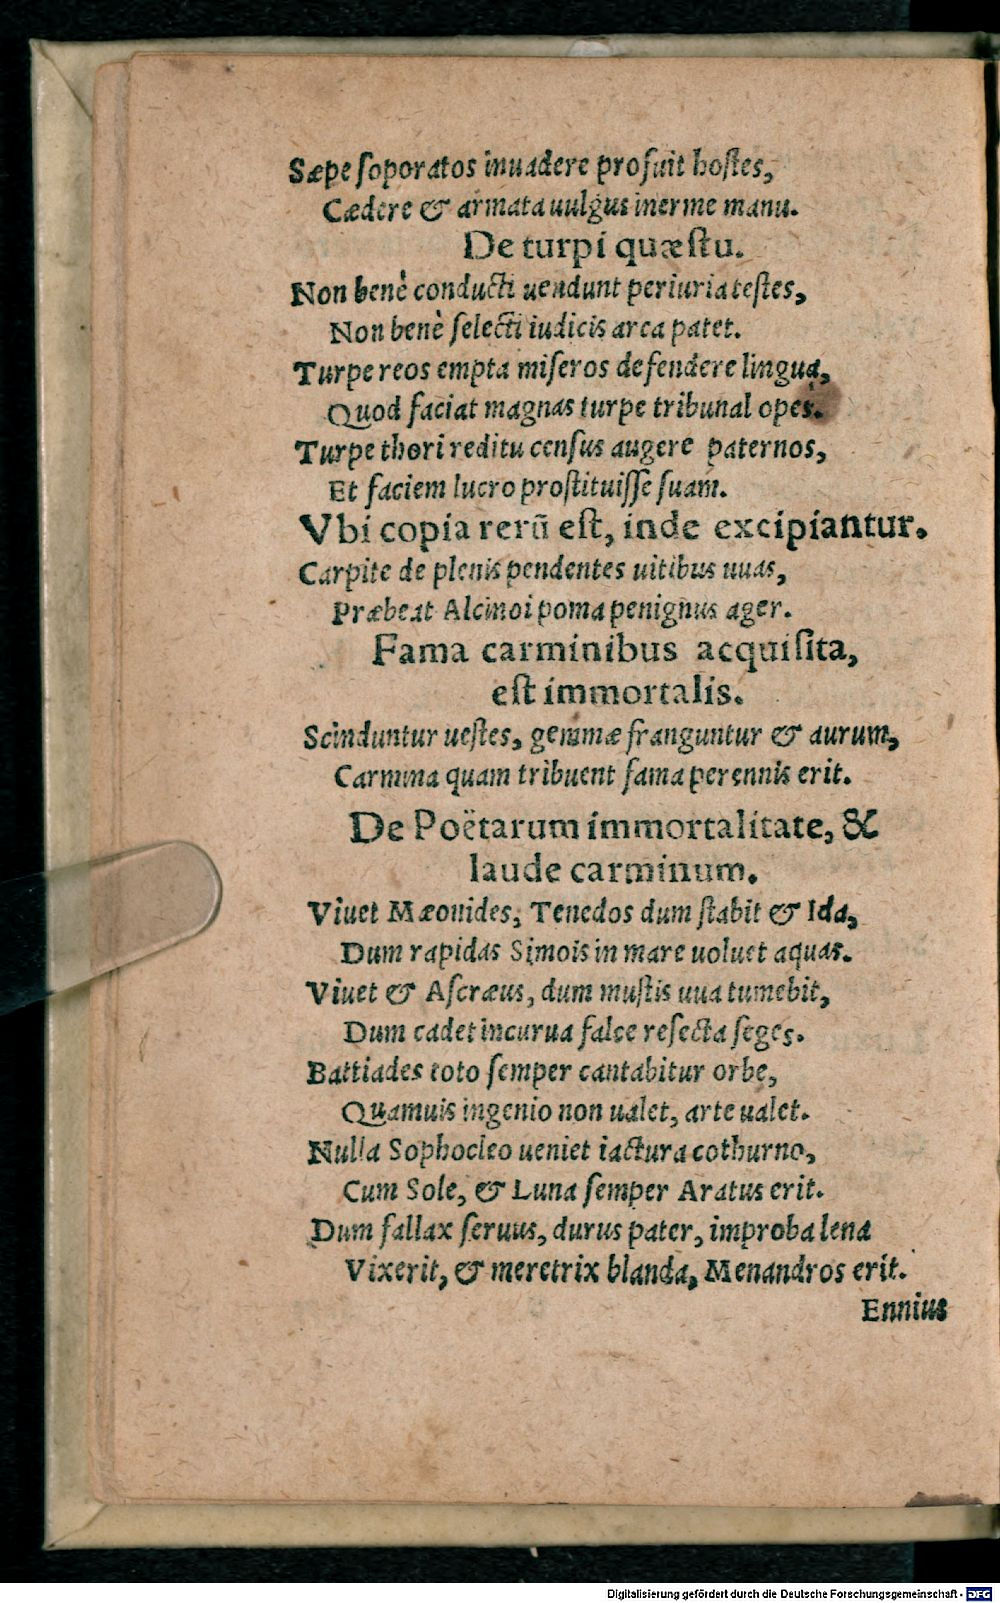 Sæpe ſoporatos inuadere profuit hoſtes,
Cædere & armata uulgus inerme manu.
De turpi quæſtu.
Non benè conducti uendunt periuria teſtes,
Non benè ſelecti iudicis arca patet.
Turpe reos empta miſeros defendere lingua,
Quod faciat magnas turpe tribunal opes.
Turpe thori reditu cenſus augere paternos,
Et faciem lucro proſtituiſſe ſuam.
Vbi copia rerū eſt, inde excipiantur.
Carpite de plenis pendentes uitibus uuas,
Præbeat Alcinoi poma penignus ager.
Fama carminibus acquiſita,
eſt immortalis.
Scinduntur ueſtes, gemmæ franguntur & aurum,
Carmina quam tribuent fama perennis erit.
De Poëtarum immortalitate, &
laude carminum.
Viuet Mæonides, Tenedos dum ſtabit & Ida,
Dum rapidas Simois in mare uoluet aquas.
Viuet & Aſcræus, dum muſtis uua tumebit,
Dum cadet incurua falce reſecta ſeges.
Battiades toto ſemper cantabitur orbe,
Quamuis ingenio non ualet, arte ualet.
Nulla Sophocleo ueniet iactura cothurno,
Cum Sole, & Luna ſemper Aratus erit.
Dum fallax ſeruus, durus pater, improba lena
Vixerit, & meretrix blanda, Menandros erit.
Ennius
Digitalisierung gefördert durch die Deutsche Forschungsgemeinschaft - DFG